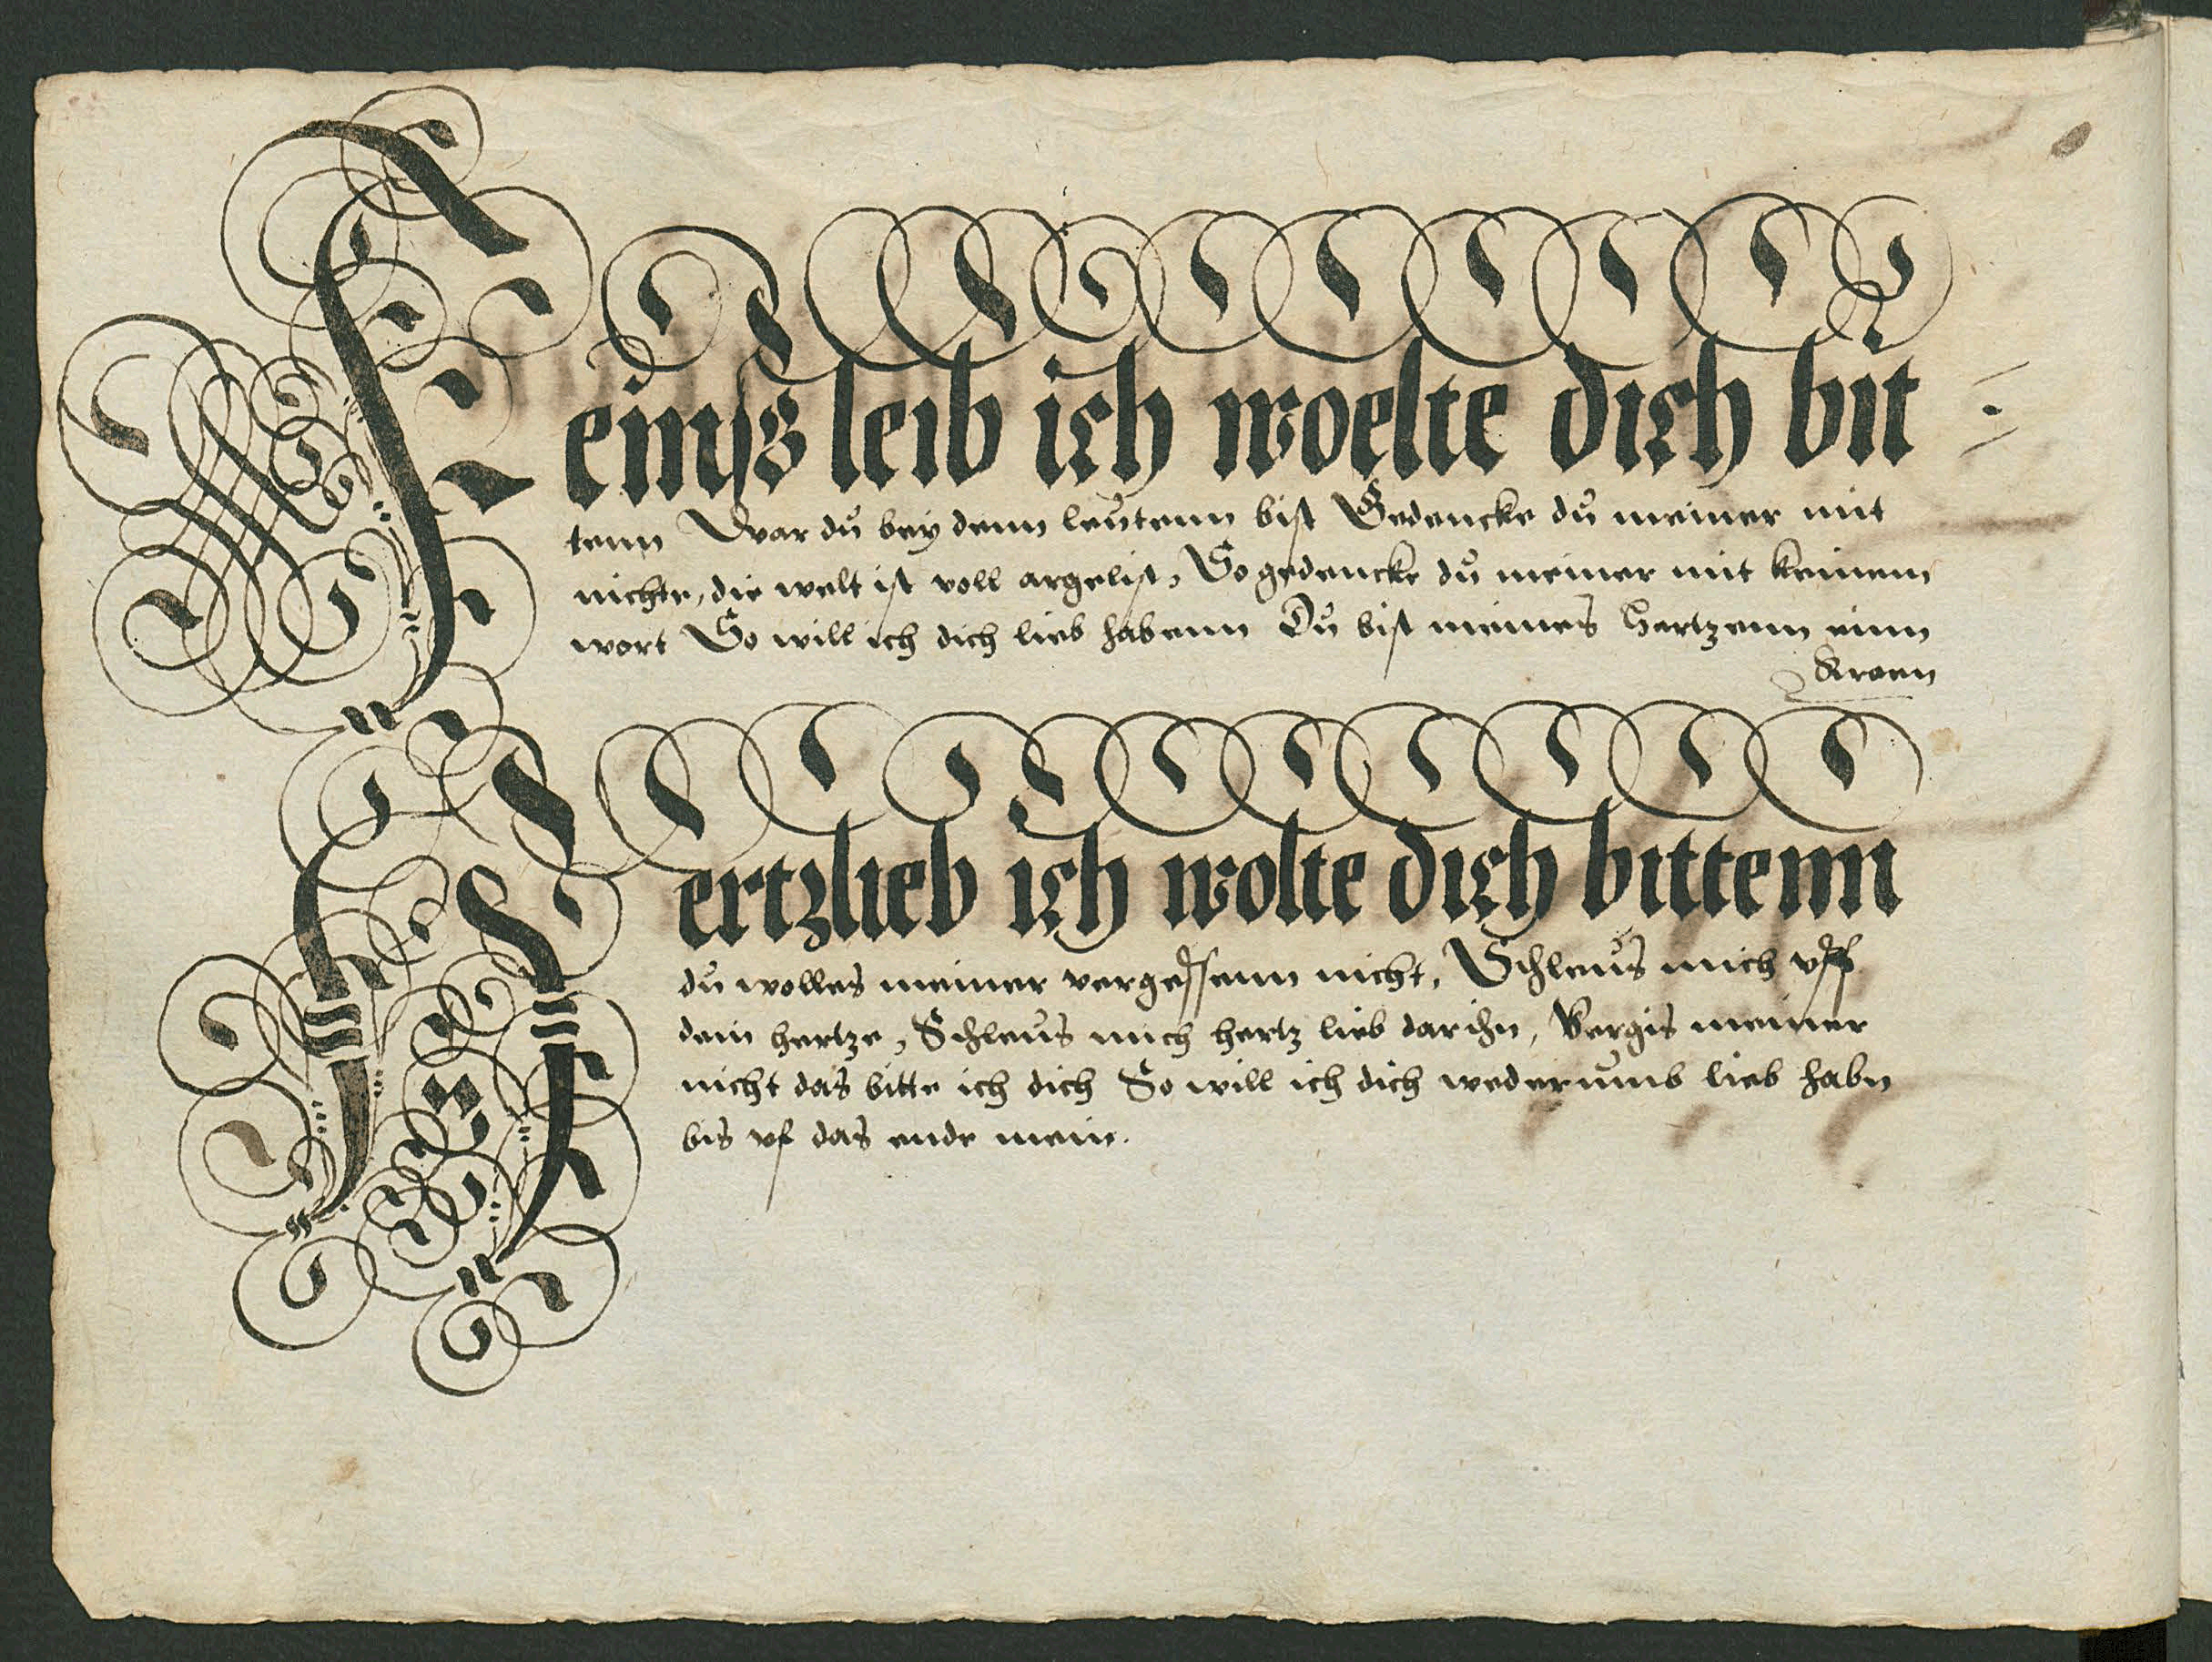 Feinſs leib ich woelte dich bit
tenn War dů bey denn leůtenn bist Gedencke dů meiner mit
nichte, die welt ist voll argelist, So gedencke dů meiner mit keinem
wort So will ich dich lieb habenn Dů bist meines Hertzenn einn
Kroen
Hertzlieb ich wolte dich bittenn
dů wolles meiner vergeſsenn nicht, Schleůs mich vff
dein hertze, Schleůs mich hertz lieb darihn, Vergis meiner
nicht das bitte ich dich So will ich dich wederůmb lieb habn
bis vf das ende mein.